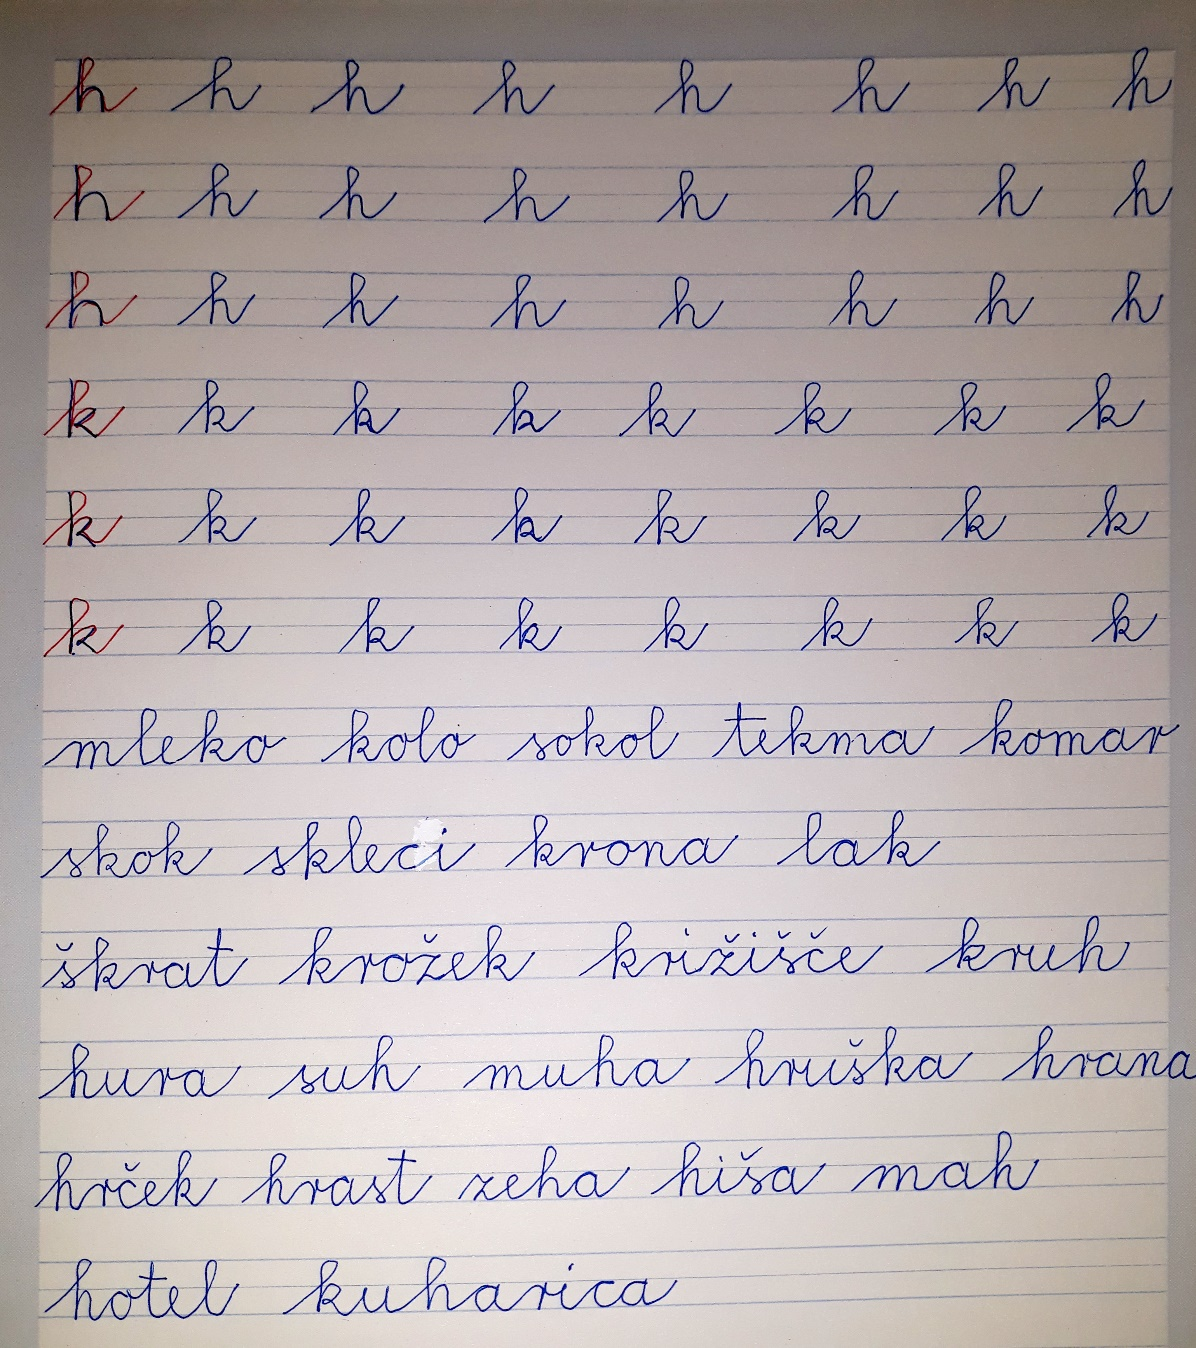 h h h h h h h h
h h h h h h h h
h h h h h h h h
k k k k k k k k
k k k k k k k k
k k k k k k k k
mleko kolo sokol tekma komar
skok skleci krona lak
škrat krožek križišče kruh
hura suh muha hruška hrana
hrček hrast zeha hiša mah
hotel kuharica